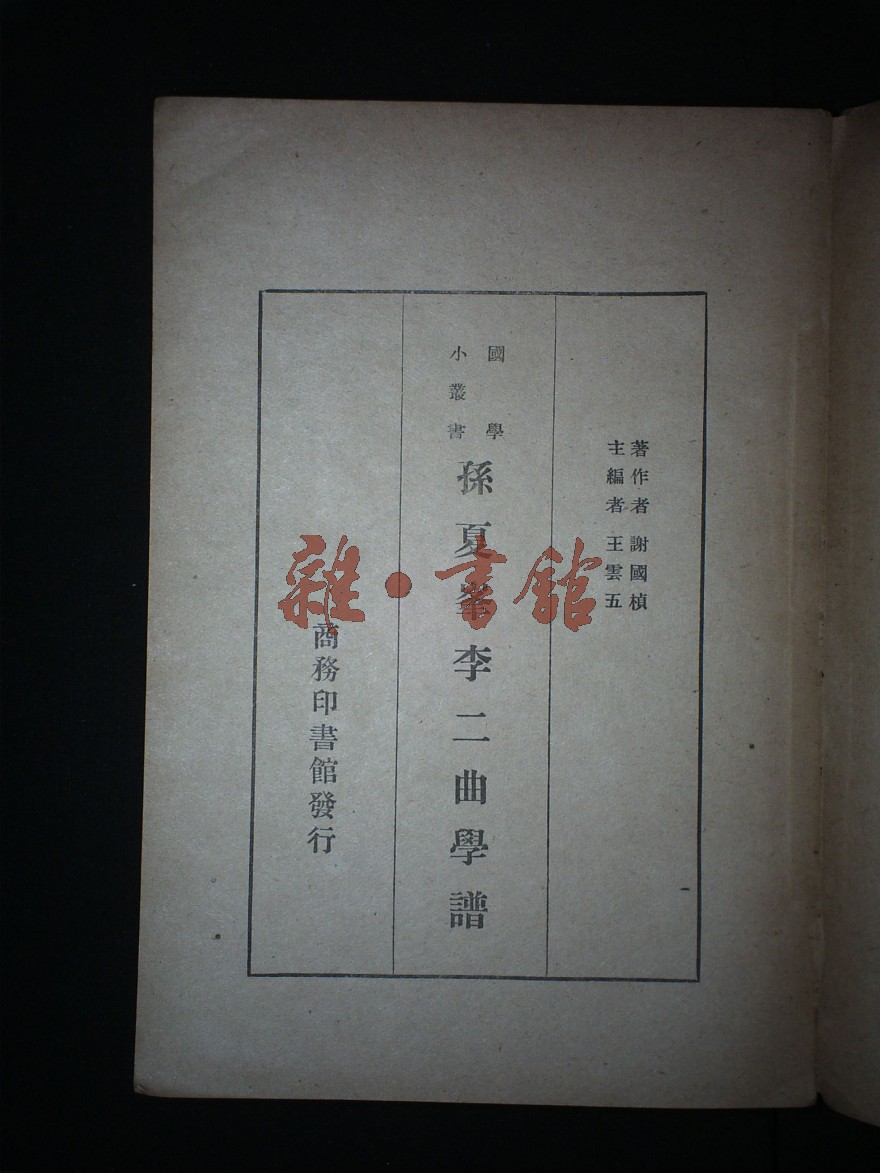 著作者 謝國楨
主編者 王雲五
國學
小叢書
孫夏峯李二曲學譜
商務印書館發行
雜·書館